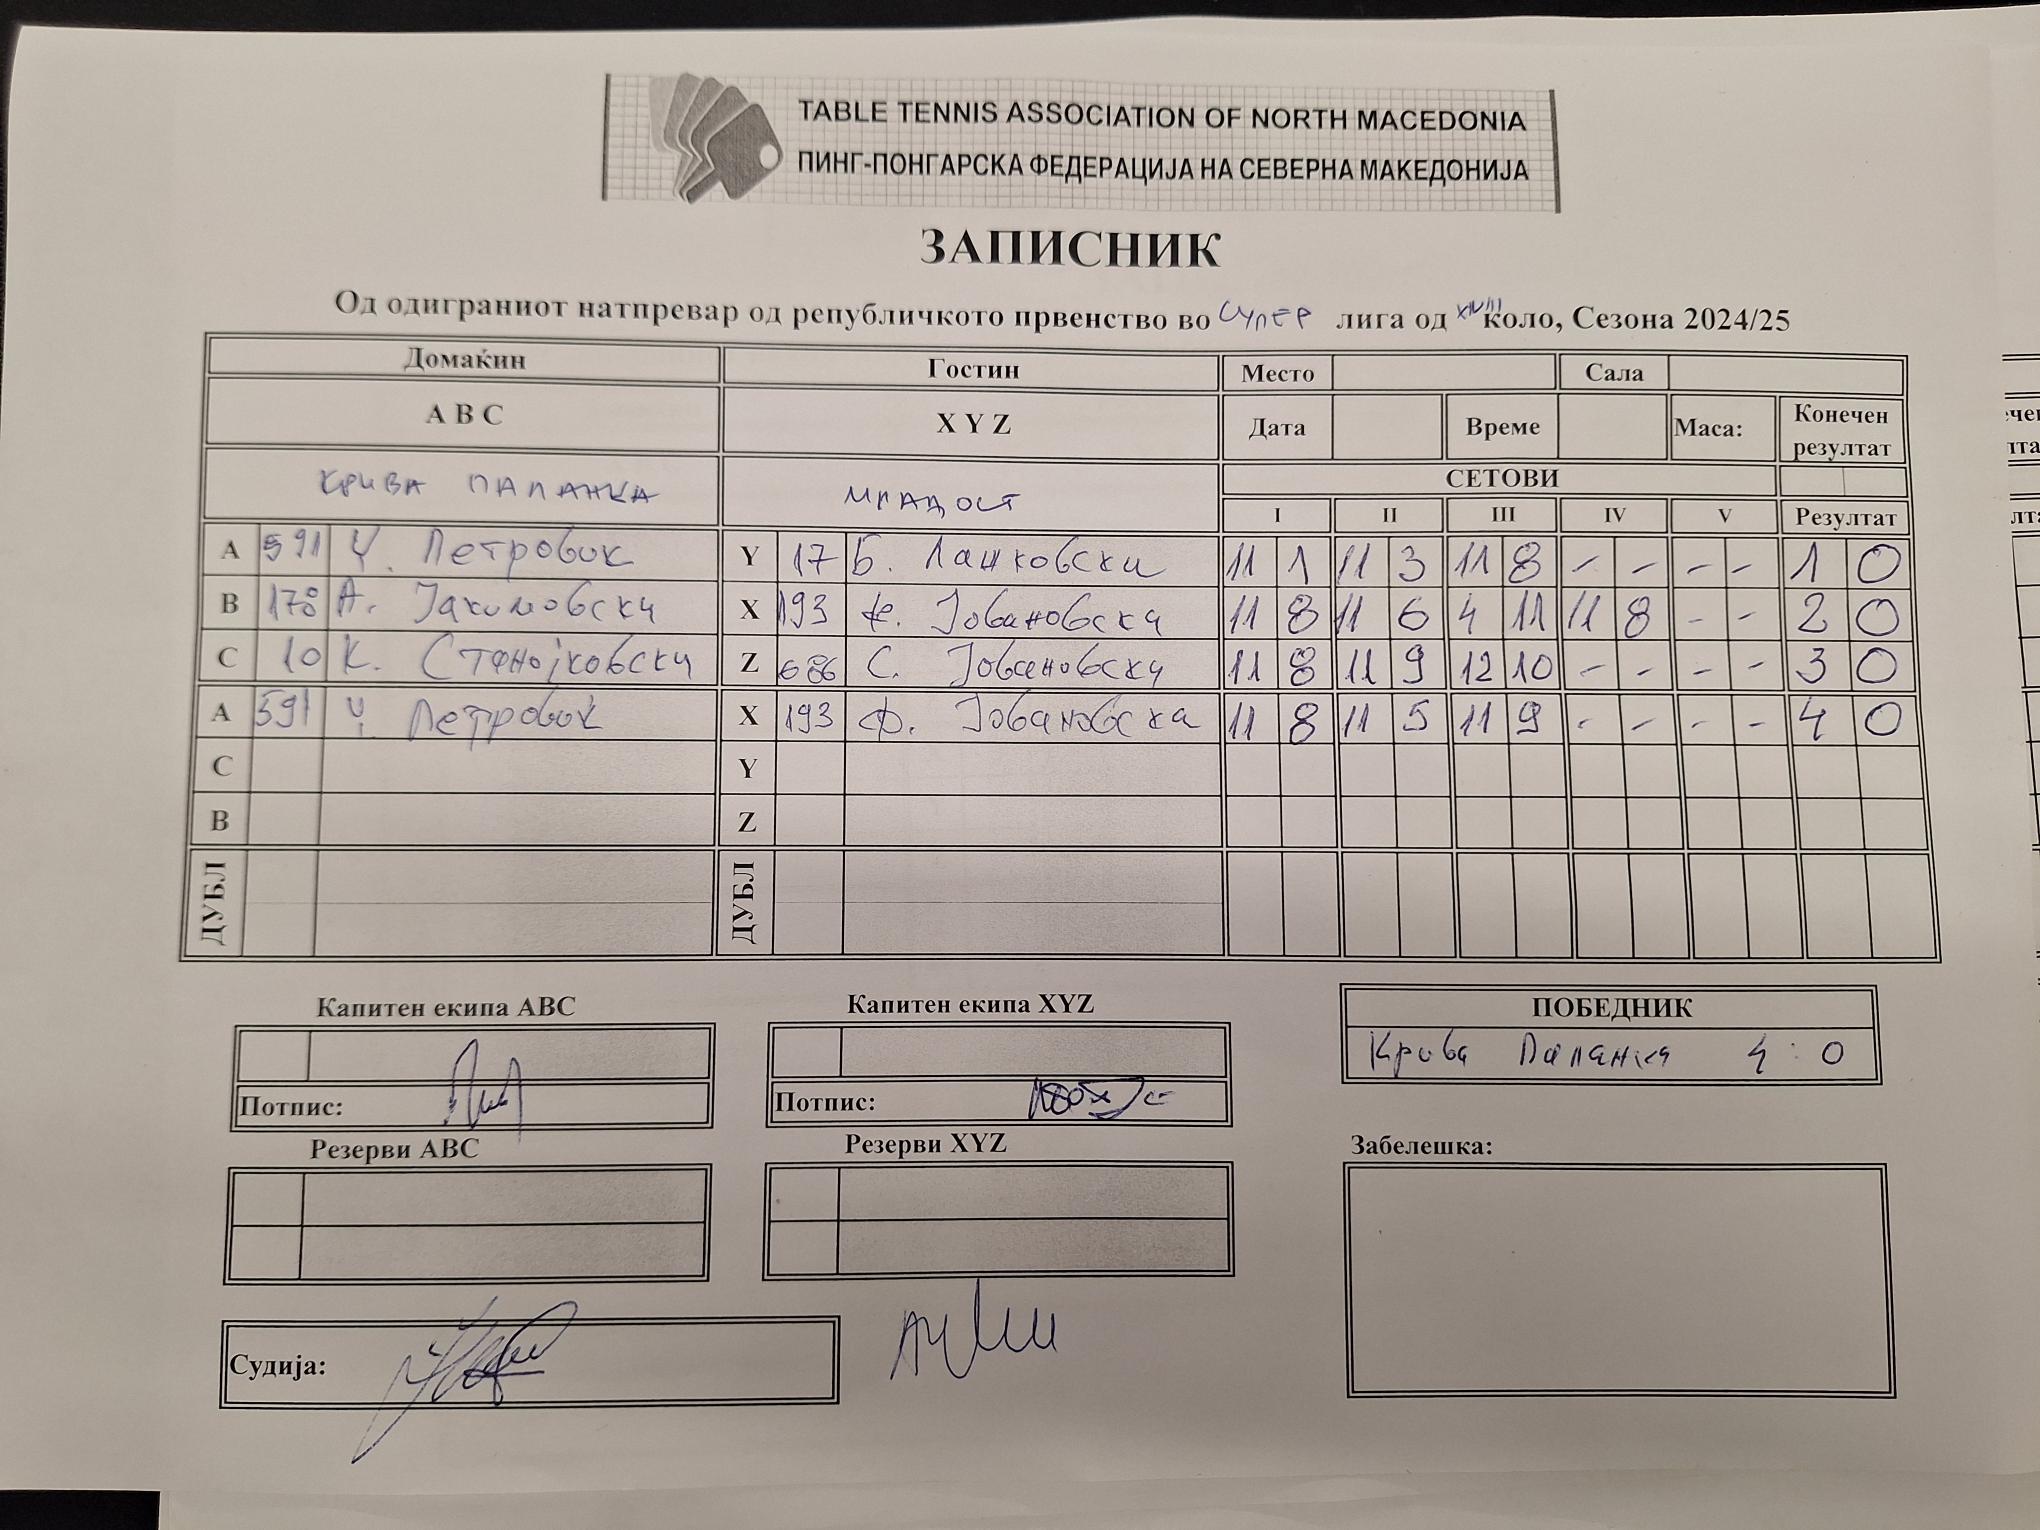 TABLE TENNIS ASSOCIATION OF NORTH MACEDONIA
ПИНГ-ПОНГАРСКА ФЕДЕРАЦИЈА НА СЕВЕРНА МАКЕДОНИЈА
ЗАПИСНИК
Од одиграниот натпревар од републичкото првенство во СУПЕР лига од коло, Сезона 2024/25
Домаќин Гостин Место Сала
A B C X Y Z Дата Време Маса: Конечен резултат
КРИВА ПАЛАНКА МЛАДОСТ СЕТОВИ
I II III IV V Резултат
A 591 Петровиќ Y 17 Б. Лашковски 11 1 11 3 11 8 - - - - 1 0
B 178 А. Јакимовски X 193 Ф. Јовановска 11 8 11 6 4 11 11 8 - - 2 0
C 10 К. Станојковски Z 686 С. Јовановски 11 8 11 9 12 10 - - - - 3 0
A 591 Петровиќ X 193 Ф. Јовановска 11 8 11 5 11 9 - - - - 4 0
C Y
B Z
ДУБЛ ДУБЛ
Капитен екипа ABC Капитен екипа XYZ ПОБЕДНИК
Крива Паланка 4 : 0
Потпис: Потпис:
Резерви ABC Резерви XYZ Забелешка:
Судија: